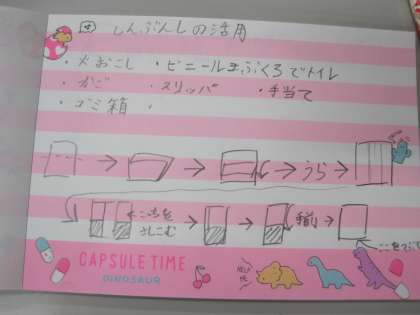 しんぶんしの活用
・火おこし ・ビニールぶくろでトイレ
・かご ・スリッパ ・手当て
・ゴミ箱 ・
うら
こっちを
さしこむ
手前
CAPSULE TIME
DINOSAUR
HELP ME